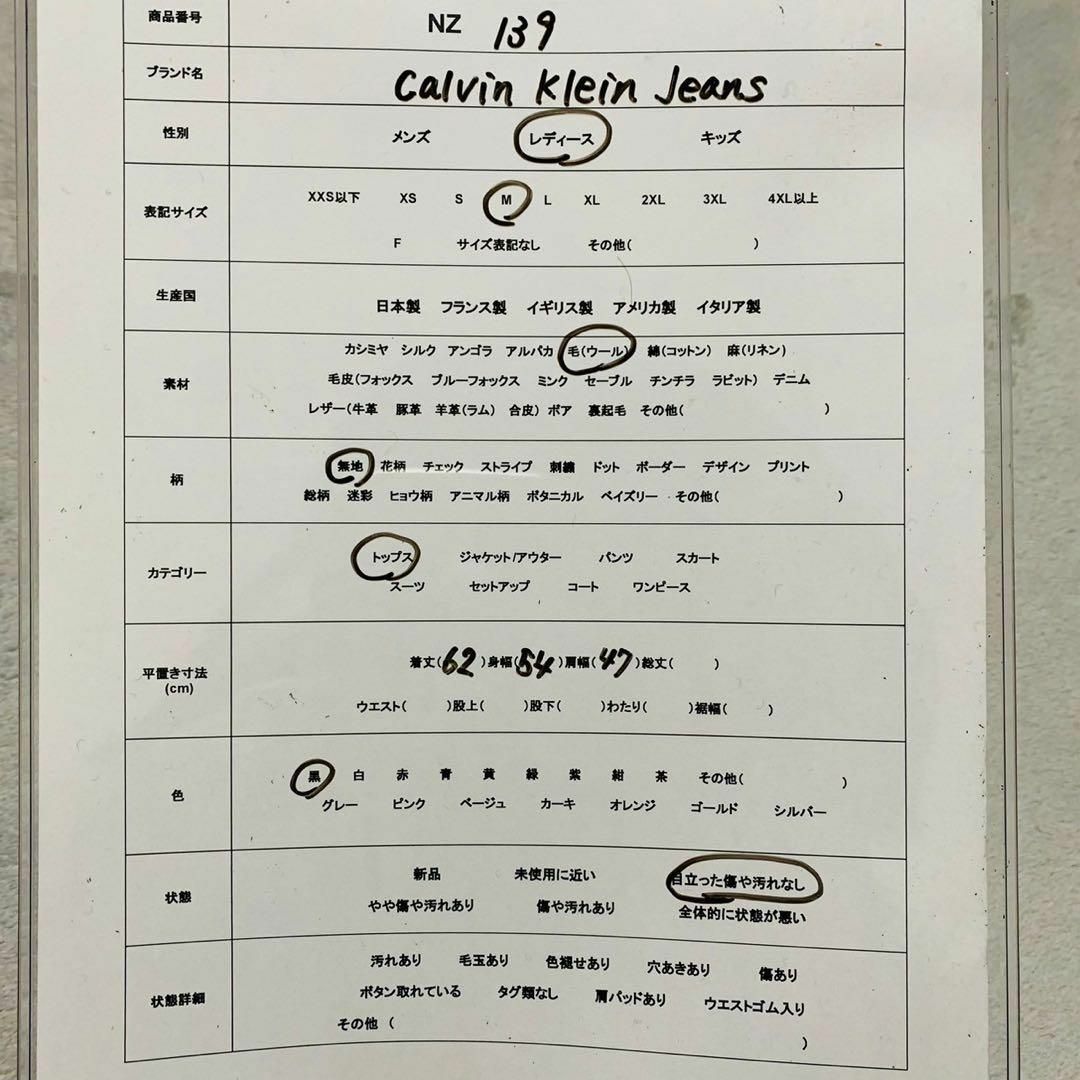 商品番号 NZ 139
ブランド名 Calvin Klein Jeans
性別 メンズ レディース キッズ
表記サイズ XXS以下 XS S M L XL 2XL 3XL 4XL以上
F サイズ表記なし その他( )
生産国 日本製 フランス製 イギリス製 アメリカ製 イタリア製
素材 カシミヤ シルク アンゴラ アルパカ 毛(ウール) 綿(コットン) 麻(リネン)
毛皮(フォックス ブルーフォックス ミンク セーブル チンチラ ラビット) デニム
レザー(牛革 豚革 羊革(ラム) 合皮) ボア 裏起毛 その他( )
柄 無地 花柄 チェック ストライプ 刺繍 ドット ボーダー デザイン プリント
総柄 迷彩 ヒョウ柄 アニマル柄 ボタニカル ペイズリー その他( )
カテゴリー トップス ジャケット/アウター パンツ スカート
スーツ セットアップ コート ワンピース
平置き寸法 (cm) 着丈(62)身幅(54)肩幅(47)総丈( )
ウエスト( )股上( )股下( )わたり( )裾幅( )
色 黒 白 赤 青 黄 緑 紫 紺 茶 その他( )
グレー ピンク ベージュ カーキ オレンジ ゴールド シルバー
状態 新品 未使用に近い 目立った傷や汚れなし
やや傷や汚れあり 傷や汚れあり 全体的に状態が悪い
状態詳細 汚れあり 毛玉あり 色褪せあり 穴あきあり 傷あり
ボタン取れている タグ類なし 肩パッドあり ウエストゴム入り
その他 ( )